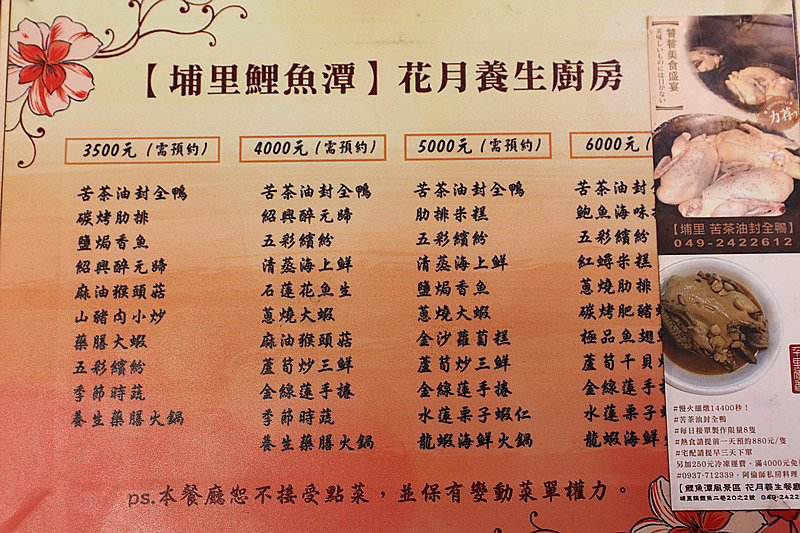 【埔里鯉魚潭】花月養生廚房
3500元（需預約）
苦茶油封全鴨
碳烤肋排
鹽焗香魚
紹興醉元蹄
麻油猴頭菇
山豬肉小炒
藥膳大蝦
五彩繽紛
季節時蔬
養生藥膳火鍋
4000元（需預約）
苦茶油封全鴨
紹興醉元蹄
五彩繽紛
清蒸海上鮮
石蓮花魚生
蔥燒大蝦
麻油猴頭菇
蘆筍炒三鮮
金線蓮手捲
季節時蔬
養生藥膳火鍋
5000元（需預約）
苦茶油封全鴨
肋排米糕
五彩繽紛
清蒸海上鮮
鹽焗香魚
蔥燒大蝦
金沙蘿蔔糕
蘆筍炒三鮮
金線蓮手捲
水蓮栗子蝦仁
龍蝦海鮮火鍋
6000元（需
苦茶油封
鮑魚海味
五彩繽紛
紅蟳米糕
蔥燒肋排
碳烤肥豬
極品魚翅
蘆筍干貝
金線蓮手
水蓮栗子
龍蝦海鮮
ps.本餐廳恕不接受點菜，並保有變動菜單權力。
【饕餮美食盛宴】
美味しいものには目がない
力荐
【埔里 苦茶油封全鴨】
049-2422612
#慢火細燉14400秒！
#苦茶油封全鴨
#每日接單製作限量8隻
#熱食請提前一天預約880元/隻
#宅配請提早三天下單
另加250元冷凍運費，滿4000元免
#0937-712339，阿倫師私房料理
【鯉魚潭風景區 花月養生餐廳
埔里鎮鯉魚二巷20之2號 049-2422